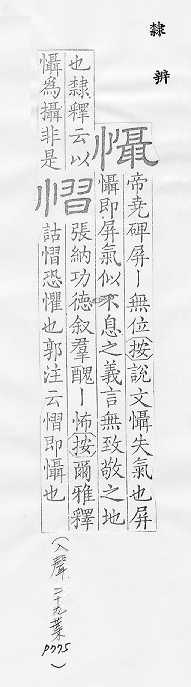 隸辨
懾
帝堯碑屏丨無位按說文懾失氣也屏
懾即屏氣似不息之義言無致敬之地
也隸釋云以
懾為攝非是
慴
張納功德叙羣醜丨怖按爾雅釋
詁慴恐懼也郭注云慴即懾也
(入聲 二十九葉 P775)